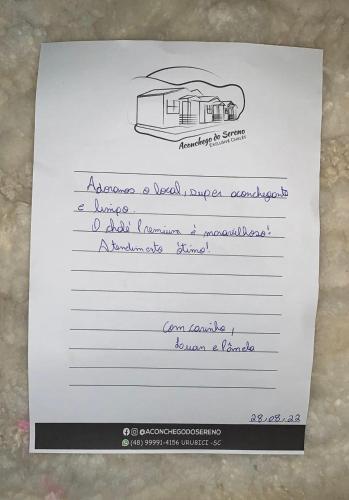 Aconchego do Sereno
EXCLUSIVE CHALÉS
Adoramos o local, super aconchegante
e limpo.
O chalé Premium é maravilhoso!
Atendimento ótimo!
Com carinho,
Luan e Pâmela
28.08.22
@ACONCHEGODOSERENO
(48) 99991-4156 URUBICI -SC